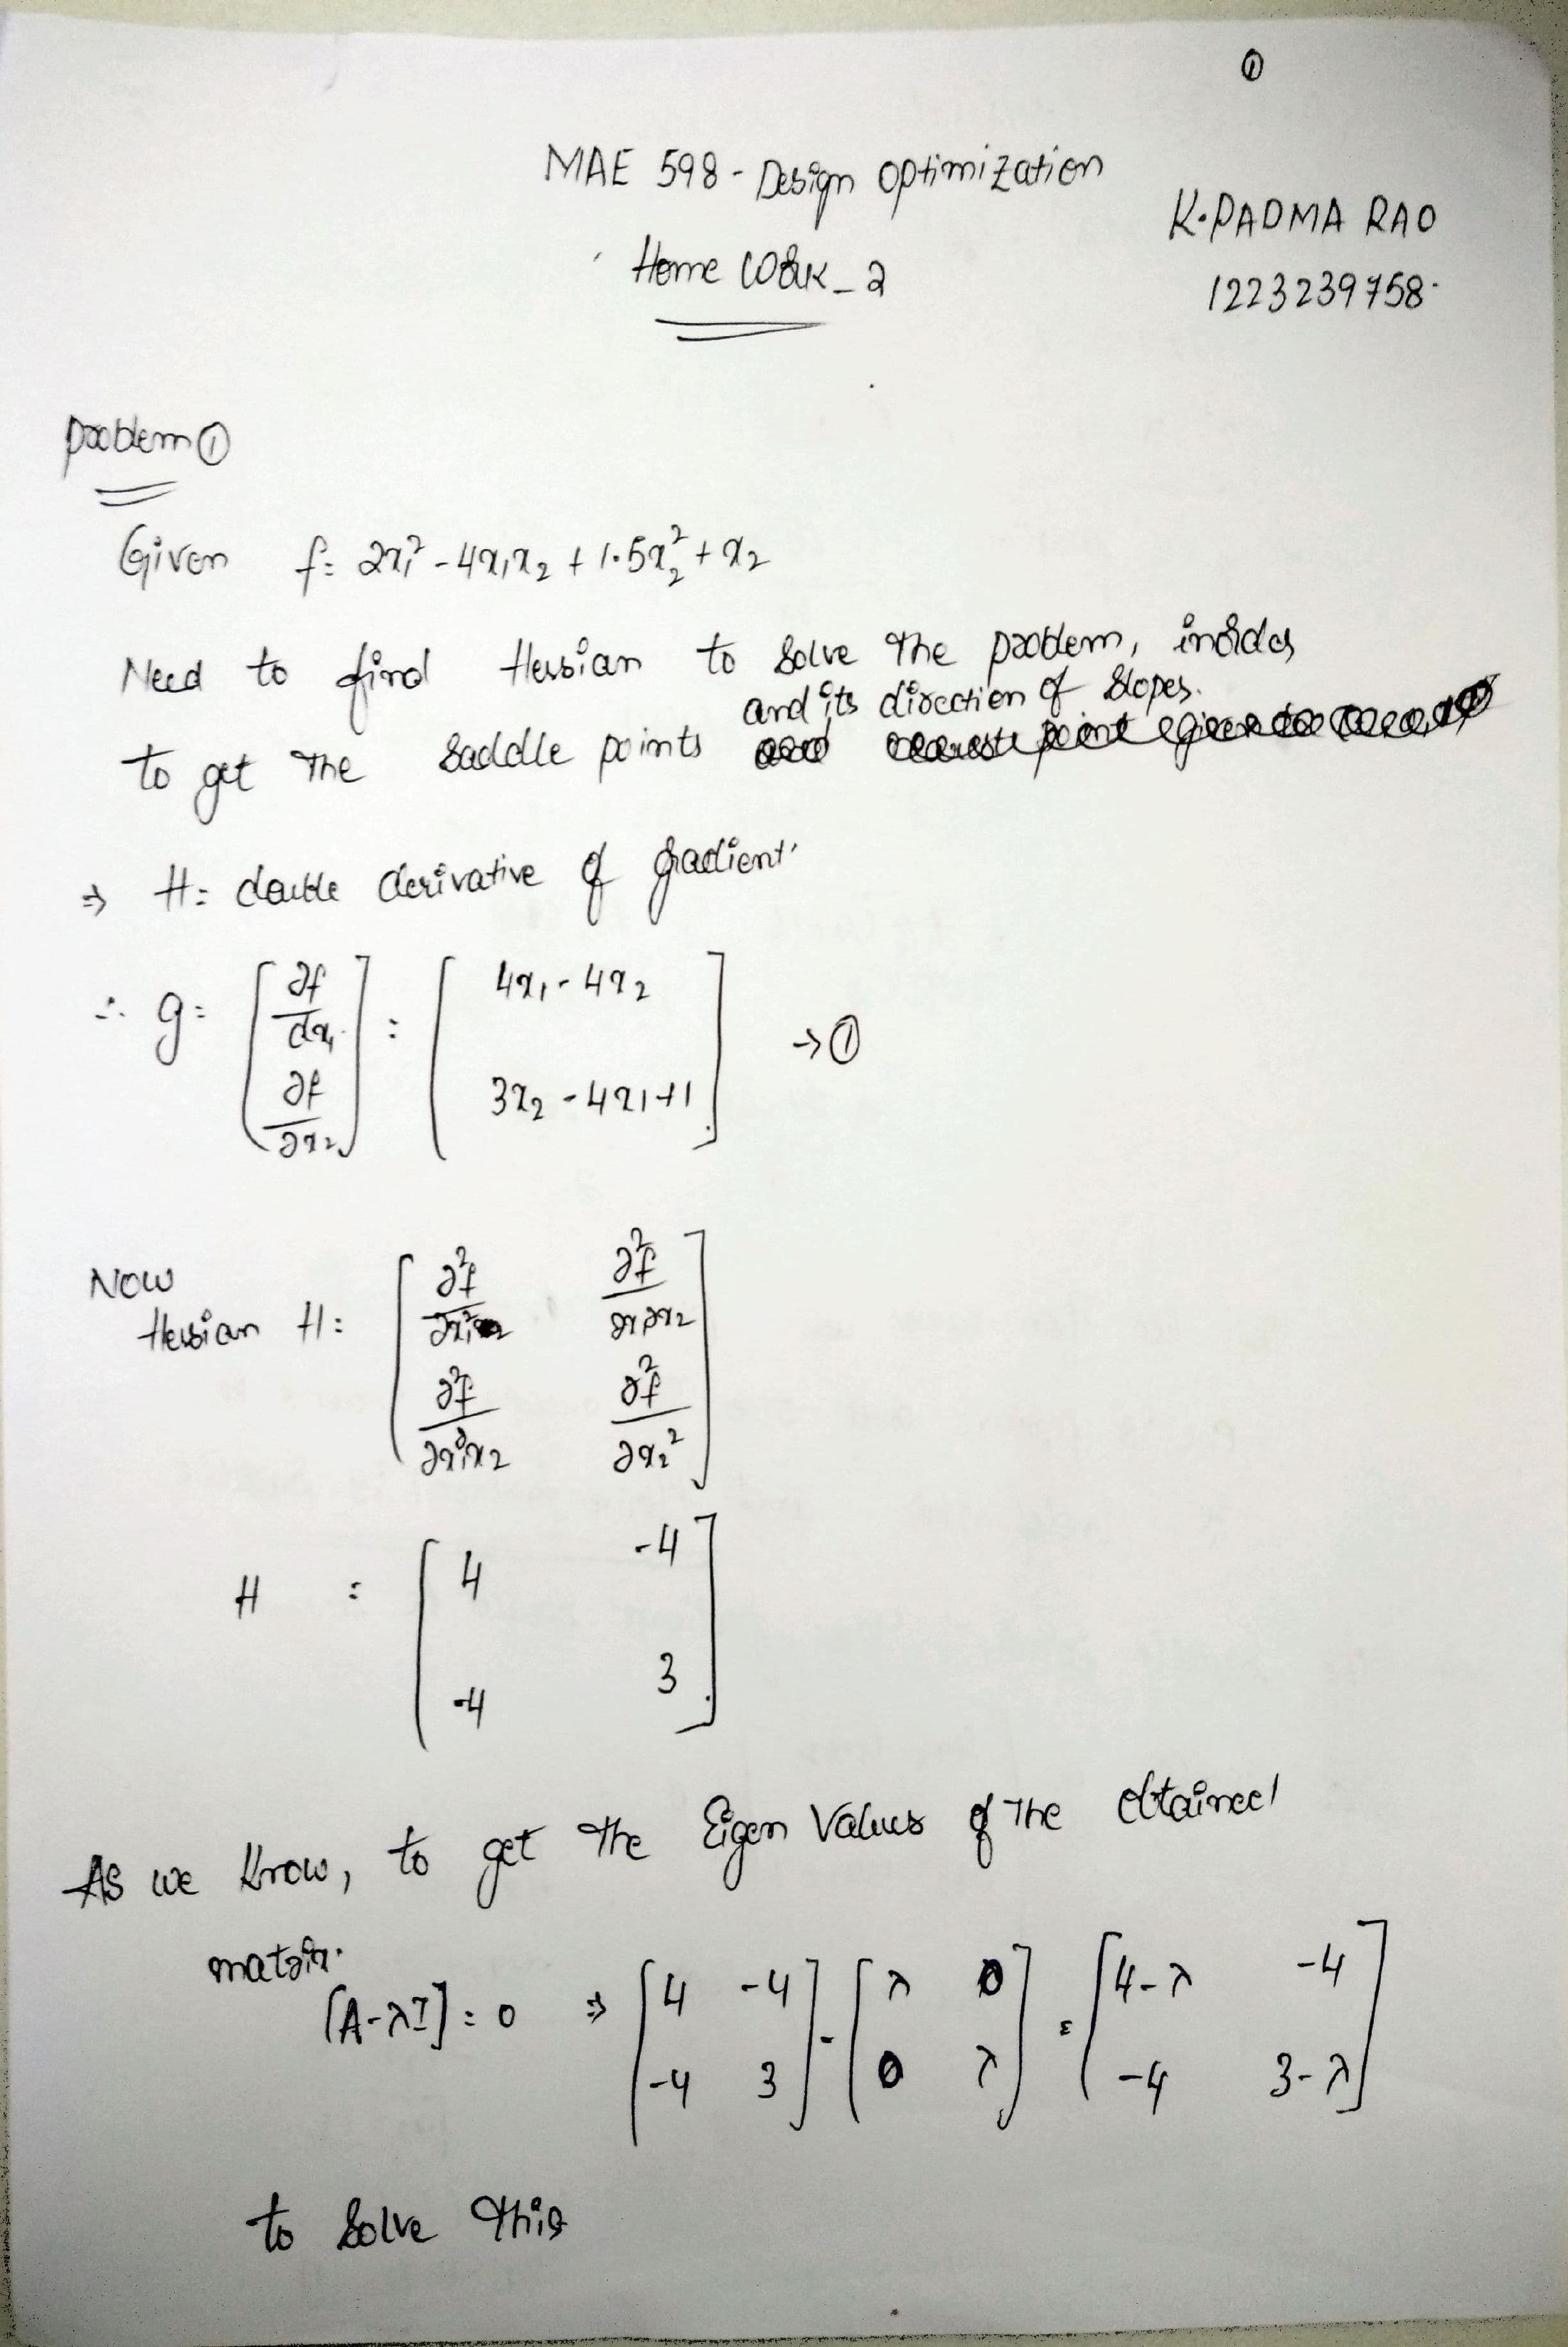 ①
MAE 598 - Design Optimization
K.PADMA RAO
Home Work_2
1223239758.
Problem ①
Given f = 2x₁² - 4x₁x₂ + 1.5x₂² + x₂
Need to find Hessian to solve the problem, inorder
to get the saddle points and its direction of slopes.
⇒ H = double derivative of gradient.
∴ g = [∂f/dx₁ ; ∂f/∂x₂] = [4x₁ - 4x₂ ; 3x₂ - 4x₁ + 1] → ①
Now
Hessian H = [∂²f/∂x₁² ∂²f/∂x₁∂x₂ ; ∂²f/∂x₁x₂ ∂²f/∂x₂²]
H = [4 -4 ; -4 3]
As we know, to get the Eigen Values of the obtained
matrix.
[A-λI] = 0 ⇒ [4 -4 ; -4 3] - [λ 0 ; 0 λ] = [4-λ -4 ; -4 3-λ]
to solve this